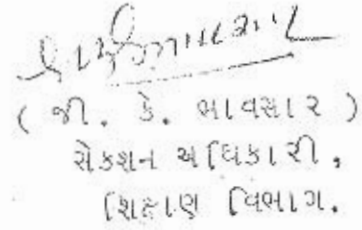 ( જી. કે. ભાવસાર )
સેકશન અધિકારી,
શિક્ષણ વિભાગ.